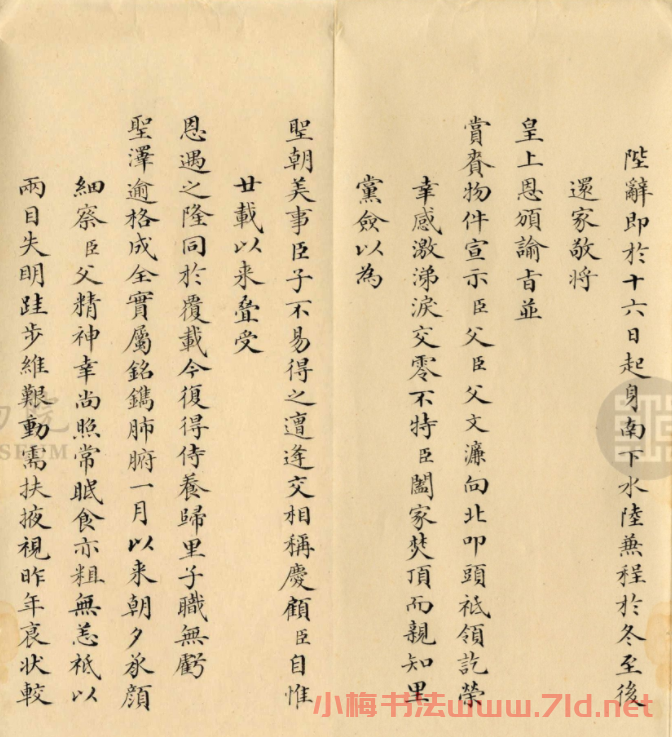 陛辭即於十六日起身南下水陸兼程於冬至後
還家敬將
皇上恩頒諭旨並
賞賚物件宣示臣父臣父文濂向北叩頭祗領訖榮
幸感激涕淚交零不特臣闔家焚頂而親知里
黨僉以為
聖朝美事臣子不易得之遭逢交相稱慶顧臣自惟
廿載以来疊受
恩遇之隆同於覆載今復得侍養歸里子職無虧
聖澤逾格成全實屬銘鐫肺腑一月以来朝夕承顔
細察臣父精神幸尚照常眠食亦粗無恙祗以
兩目失明跬步維艱動需扶掖視昨年衰状較
小梅书法www.7ld.net